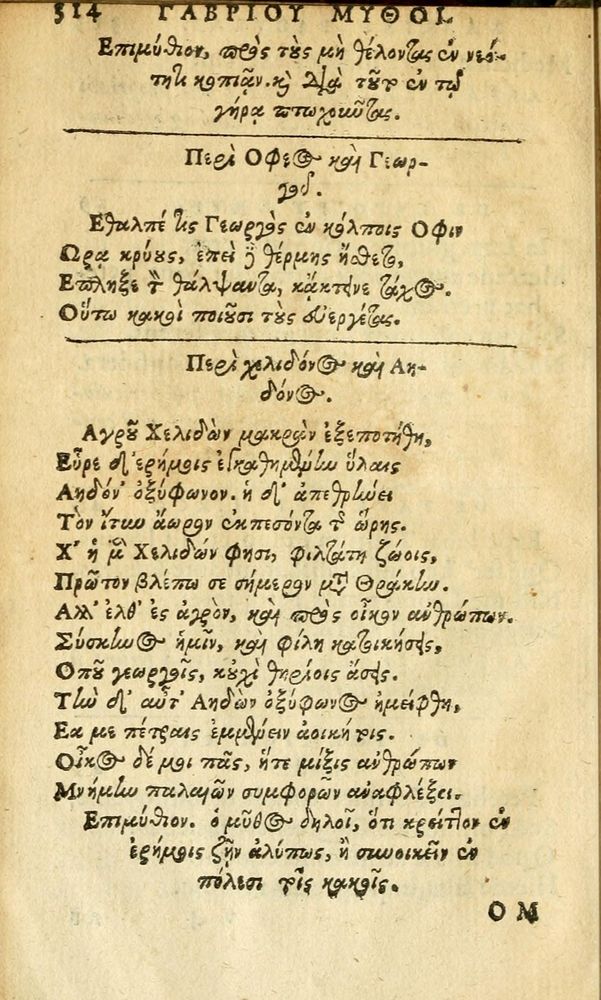 514 ΓΑΒΡΙΟΥ ΜΥΘΟΙ.
Επιμύθιον, πρὸς τοὺς μὴ θέλοντας ἐν νεό-
τητι κοπιᾶν. καὶ διὰ τοῦτο ἐν τῷ
γήρᾳ πτωχοιῶτας.
Περὶ Οφεος καὶ Γεωρ-
γοῦ.
Εθαλπέ τις Γεωργὸς ἐν κόλποις Οφιν
Ωρᾳ κρύους, ἐπεὶ δὲ θέρμης ᾔσθετο,
Επληξε τὸν θάλψαντα, κᾄκτεινε ταχύς.
Οὕτω κακοὶ ποιοῦσι τοὺς εὐεργέτας.
Περὶ χελιδόνος καὶ Αη-
δόνος.
Αγροῦ Χελιδὼν μακρὰν ἐξεποτήθη,
Εὗρε δ' ἐρήμοις ἐγκαθημένην ὕλαις
Αηδόν' ὀξύφωνον. ἡ δ' ἀπεθρήνει
Τὸν ἴτυν ἄωρον ἐκπεσόντα τῆς ὥρης.
Χ' ἡ μὲν Χελιδών φησι, φιλτάτη ζώοις,
Πρῶτον βλέπω σε σήμερον μετὰ Θρᾴκην.
Αλλ' ἐλθ' ἐς ἀγρὸν, καὶ πρὸς οἶκον ἀνθρώπων.
Σύσκηνος ἡμῖν, καὶ φίλη κατοικήσεις,
Οπου γεωργοῖς, κοὐχὶ θηρίοις ᾄσεις.
Τὴν δ' αὖτ' Αηδὼν ὀξύφωνος ἠμείφθη,
Εα με πέτραις ἐμμένειν ἀοικήτοις.
Οἶκος δέ μοι πᾶς, ἥτε μίξις ἀνθρώπων
Μνήμην παλαιῶν συμφορῶν ἀναφλέξει.
Επιμύθιον. ὁ μῦθος δηλοῖ, ὅτι κρεῖττον ἐν
ἐρήμοις ζῆν ἀλύπως, ἢ συνοικεῖν ἐν
πόλεσι τοῖς κακοῖς.
ΟΜ